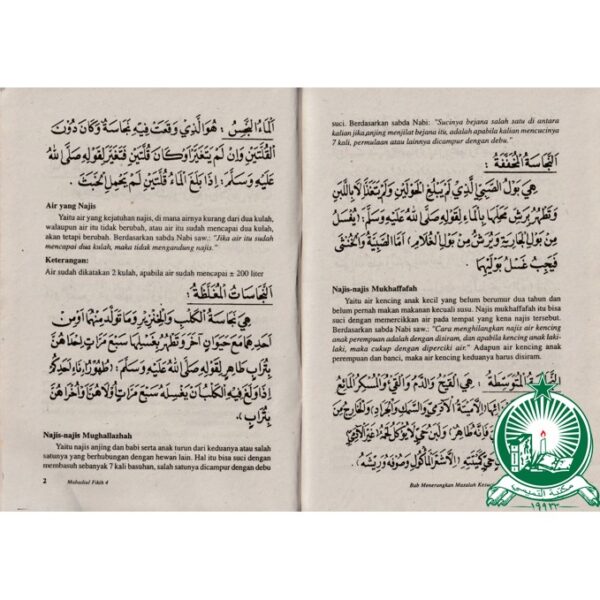 الْمَاءُ النَّجِسُ : هُوَ الَّذِي وَقَعَتْ فِيهِ نَجَاسَةٌ وَكَانَ دُوْنَ
الْقُلَّتَيْنِ وَإِنْ لَمْ يَتَغَيَّرْ أَوْ كَانَ قُلَّتَيْنِ فَتَغَيَّرَ لِقَوْلِهِ صَلَّى اللهُ
عَلَيْهِ وَسَلَّمَ : إِذَا بَلَغَ الْمَاءُ قُلَّتَيْنِ لَمْ يَحْمِلِ الْخَبَثَ
Air yang Najis
Yaitu air yang kejatuhan najis, di mana airnya kurang dari dua kulah,
walaupun air itu tidak berubah, atau air itu sudah mencapai dua kulah,
akan tetapi berubah. Berdasarkan sabda Nabi saw.: "Jika air itu sudah
mencapai dua kulah, maka tidak mengandung najis."
Keterangan:
Air sudah dikatakan 2 kulah, apabila air sudah mencapai ± 200 liter
النَّجَاسَاتُ الْمُغَلَّظَةُ :
هِيَ نَجَاسَةُ الْكَلْبِ وَالْخِنْزِيْرِ وَمَا تَوَلَّدَ مِنْهُمَا أَوْ مِنْ
أَحَدِهِمَا مَعَ حَيَوَانٍ آخَرَ وَتَطْهُرُ بِغَسْلِهَا سَبْعَ مَرَّاتٍ إِحْدَاهُنَّ
بِتُرَابٍ طَاهِرٍ لِقَوْلِهِ صَلَّى اللهُ عَلَيْهِ وَسَلَّمَ : (طُهُوْرُ إِنَاءِ أَحَدِكُمْ
إِذَا وَلَغَ فِيْهِ الْكَلْبُ أَنْ يَغْسِلَهُ سَبْعَ مَرَّاتٍ أُوْلَاهُنَّ أَوْ أُخْرَاهُنَّ
بِتُرَابٍ).
Najis-najis Mughallazhah
Yaitu najis anjing dan babi serta anak turun dari keduanya atau salah
satunya yang berhubungan dengan hewan lain. Hal itu bisa suci dengan
membasuh sebanyak 7 kali basuhan, salah satunya dicampur dengan debu
2 Mabadiul Fikih 4
suci. Berdasarkan sabda Nabi: "Sucinya bejana salah satu di antara
kalian jika anjing menjilat bejana itu, adalah apabila kalian mencucinya
7 kali, permulaan atau lainnya dicampur dengan debu."
النَّجَاسَةُ الْمُخَفَّفَةُ :
هِيَ بَوْلُ الصَّبِيِّ الَّذِي لَمْ يَبْلُغِ الْحَوْلَيْنِ وَلَمْ يَتَغَذَّ إِلَّا بِاللَّبَنِ
وَتَطْهُرُ بِرَشِّ مَحَلِّهَا بِالْمَاءِ لِقَوْلِهِ صَلَّى اللهُ عَلَيْهِ وَسَلَّمَ : (يُغْسَلُ
مِنْ بَوْلِ الْجَارِيَةِ وَيُرَشُّ مِنْ بَوْلِ الْغُلَامِ) أَمَّا الصَّبِيَّةُ وَالْخُنْثَى
فَيَجِبُ غَسْلُ بَوْلِهِمَا
Najis-najis Mukhaffafah
Yaitu air kencing anak kecil yang belum berumur dua tahun dan
belum pernah makan makanan kecuali susu. Najis mukhaffafah itu bisa
suci dengan memercikkan air pada tempat yang kena najis tersebut.
Berdasarkan sabda Nabi saw.: "Cara menghilangkan najis air kencing
anak perempuan adalah dengan disiram, dan apabila kencing anak laki-
laki, maka cukup dengan diperciki air." Adapun air kencing anak
perempuan dan banci, maka air kencing keduanya harus disiram.
النَّجَاسَةُ الْمُتَوَسِّطَةُ : هِيَ الْقَيْحُ وَالدَّمُ وَالْقَيْءُ وَالْمُسْكِرُ الْمَائِعُ
الْآدَمِيَّ وَالسَّمَكَ وَالْجَرَادَ، وَالْخَارِجُ مِنْ
فَإِنَّهُ طَاهِرٌ، وَلَبَنُ حَيٍّ لَا يُؤْكَلُ لَحْمُهُ
حَيٍّ كَمَيْتَتِهِ إِلَّا شَعْرَ الْمَأْكُولِ وَصُوْفَهُ وَرِيْشَهُ
Bab Menerangkan Masalah
مكتبة
١٩٩٣